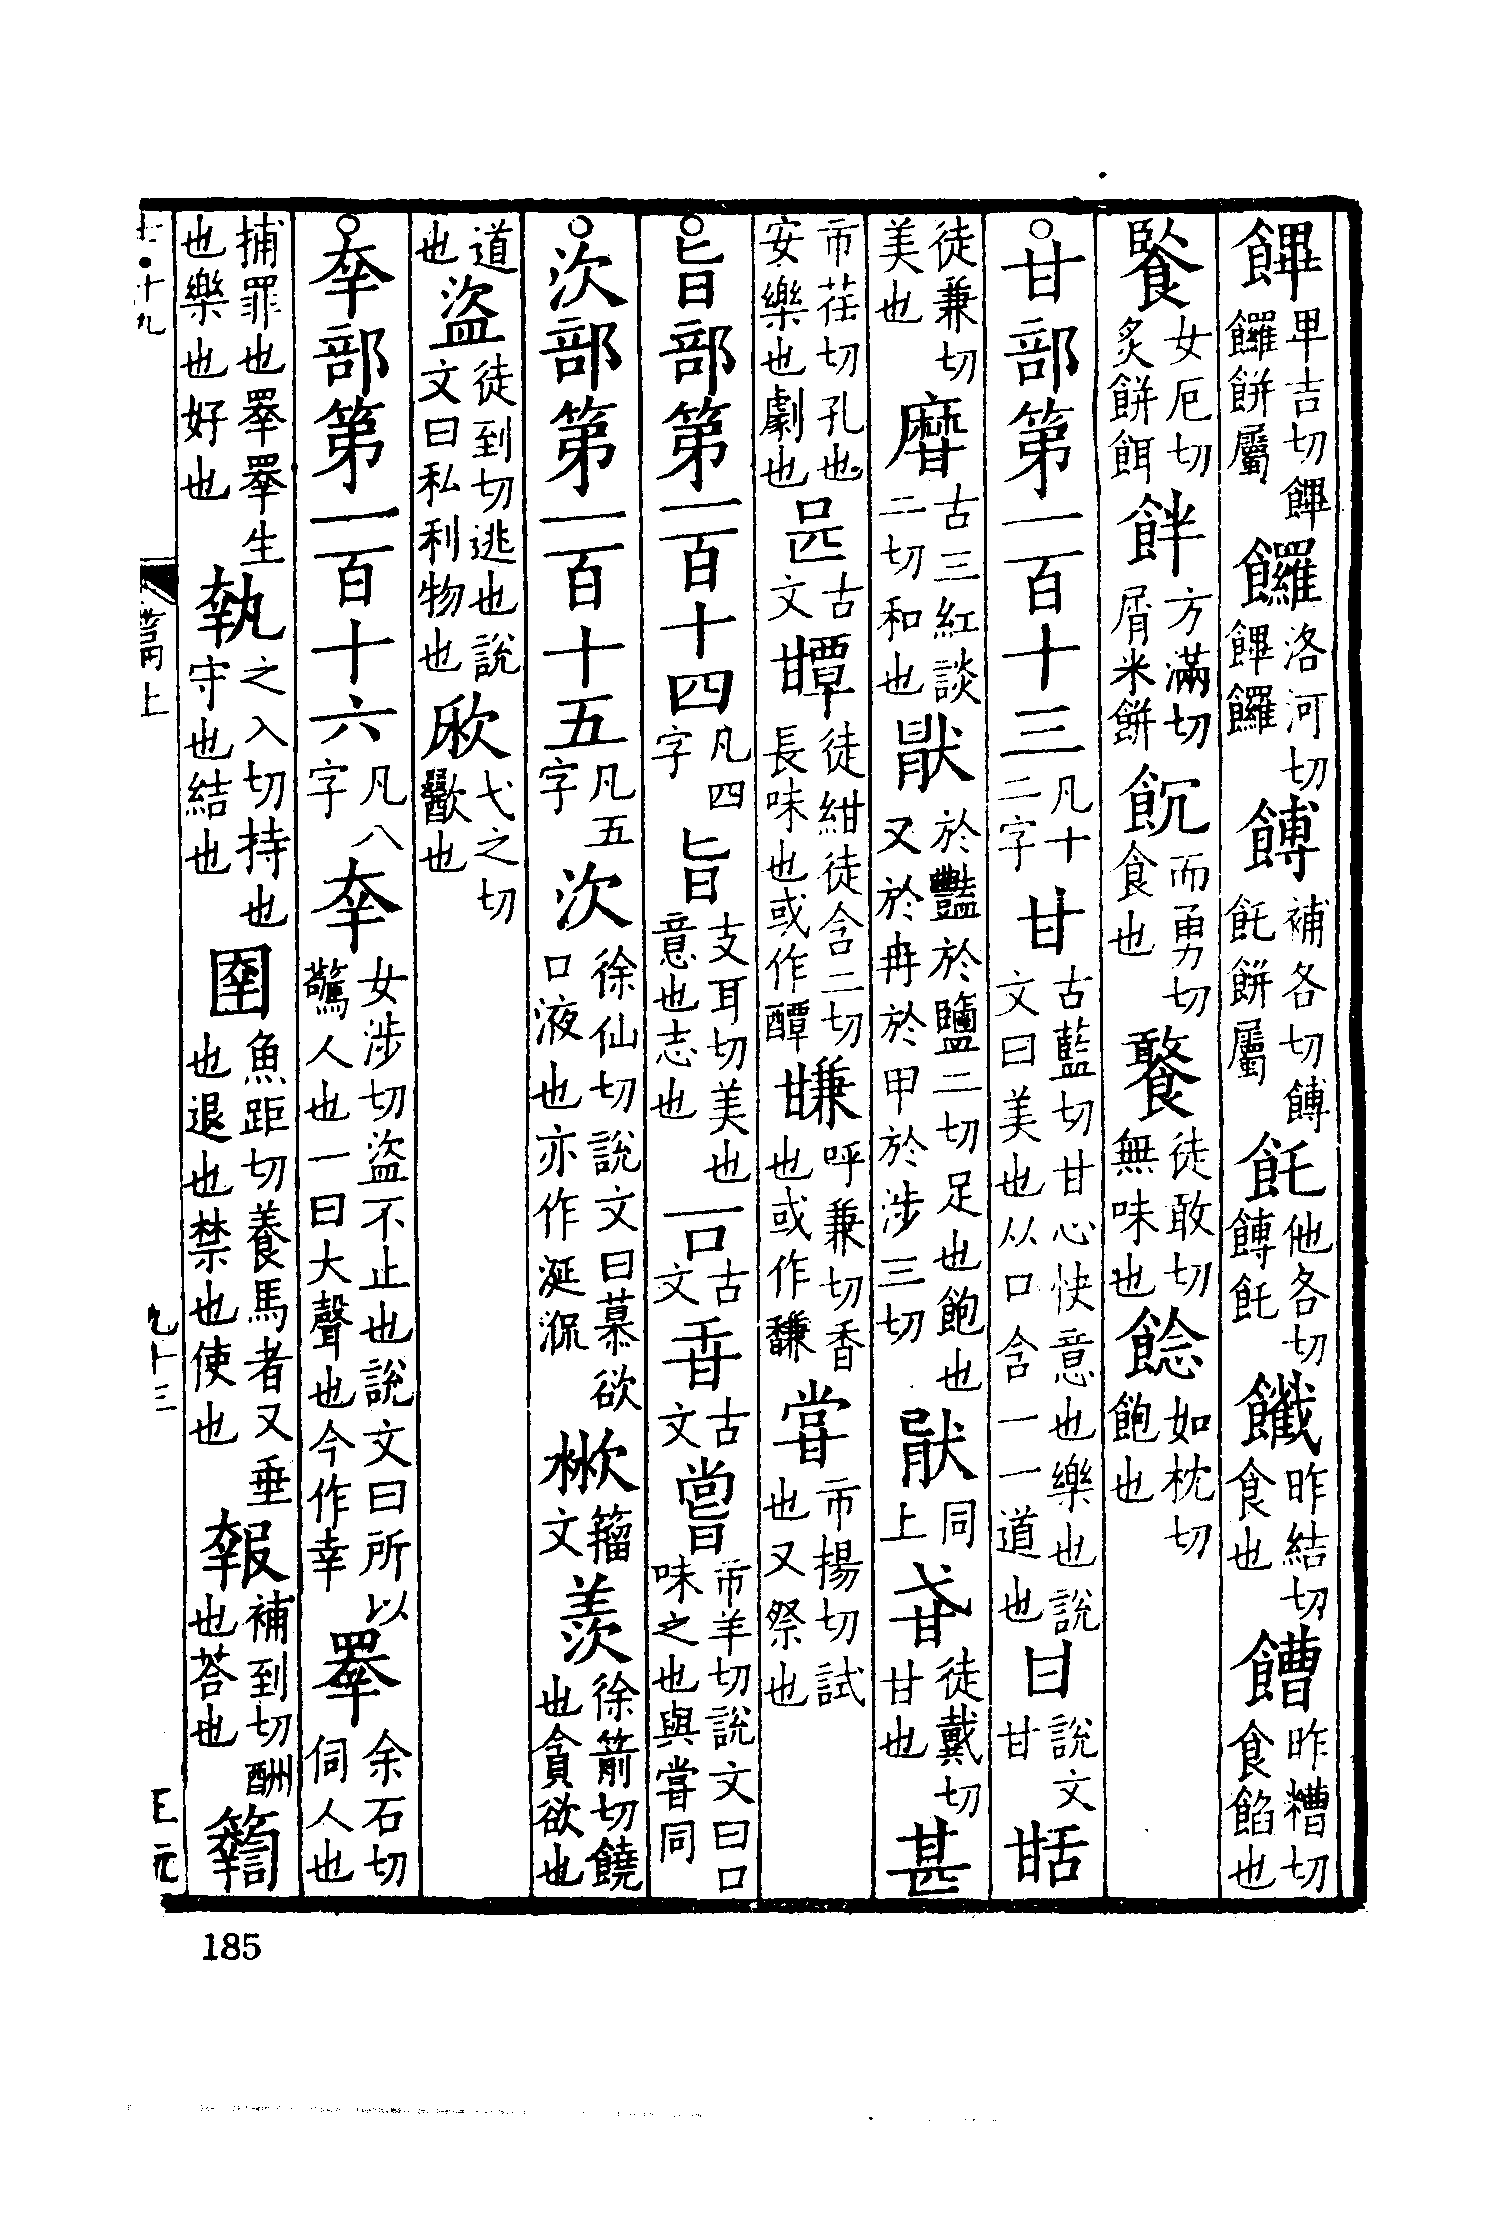 饆卑吉切饆饠餅屬饠洛河切饆饠餺補各切餺飥餅屬飥他各切餺飥䭙昨結切食也䭚昨糟切食餡也
䬫女厄切炙餅餌䬳方滿切屑米餅䬴而勇切食也䭛徒敢切無味也餯如枕切飽也
○甘部第一百十三凡十二字甘古藍切甘心快意也樂也說文曰美也从口含一一道也𠙻說文甘甛
徒兼切美也𪎒古三紅談二切和也猒於豔於鹽二切足也飽也又於冉於甲於涉三切𤟟同上𤯍徒戴切甘也甚
市荏切孔也安樂也劇也𠯕古文𤯏徒紺徒含二切長味也或作醰𤯌呼兼切香也或作馦甞市揚切試也又祭也
○旨部第一百十四凡四字旨支耳切美也意也志也𠤔古文𣅌古文嘗市羊切說文曰口味之也與甞同
○㳄部第一百十五凡五字㳄徐仙切說文曰慕欲口液也亦作涎㳭㰇籀文羨徐箭切饒也貪欲也
道也盜徒到切逃也說文曰私利物也㳄弋之切歠也
○㚔部第一百十六凡八字㚔女涉切盜不止也說文曰所以驚人也一曰大聲也今作幸睪余石切伺人也
捕罪也睪睪生也樂也好也執之入切持也守也結也圉魚距切養馬者又垂也退也禁也使也報補到切酬也荅也𥷚
十九
篇上
九十三
王元
185